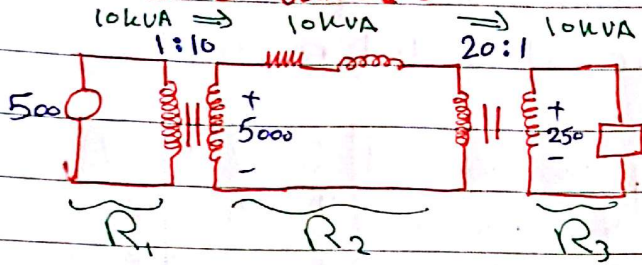 10kVA ⇒ 10kVA ⇒ 10kVA
1:10 20:1
500 + 5000 - + 250 -
R1 R2 R3